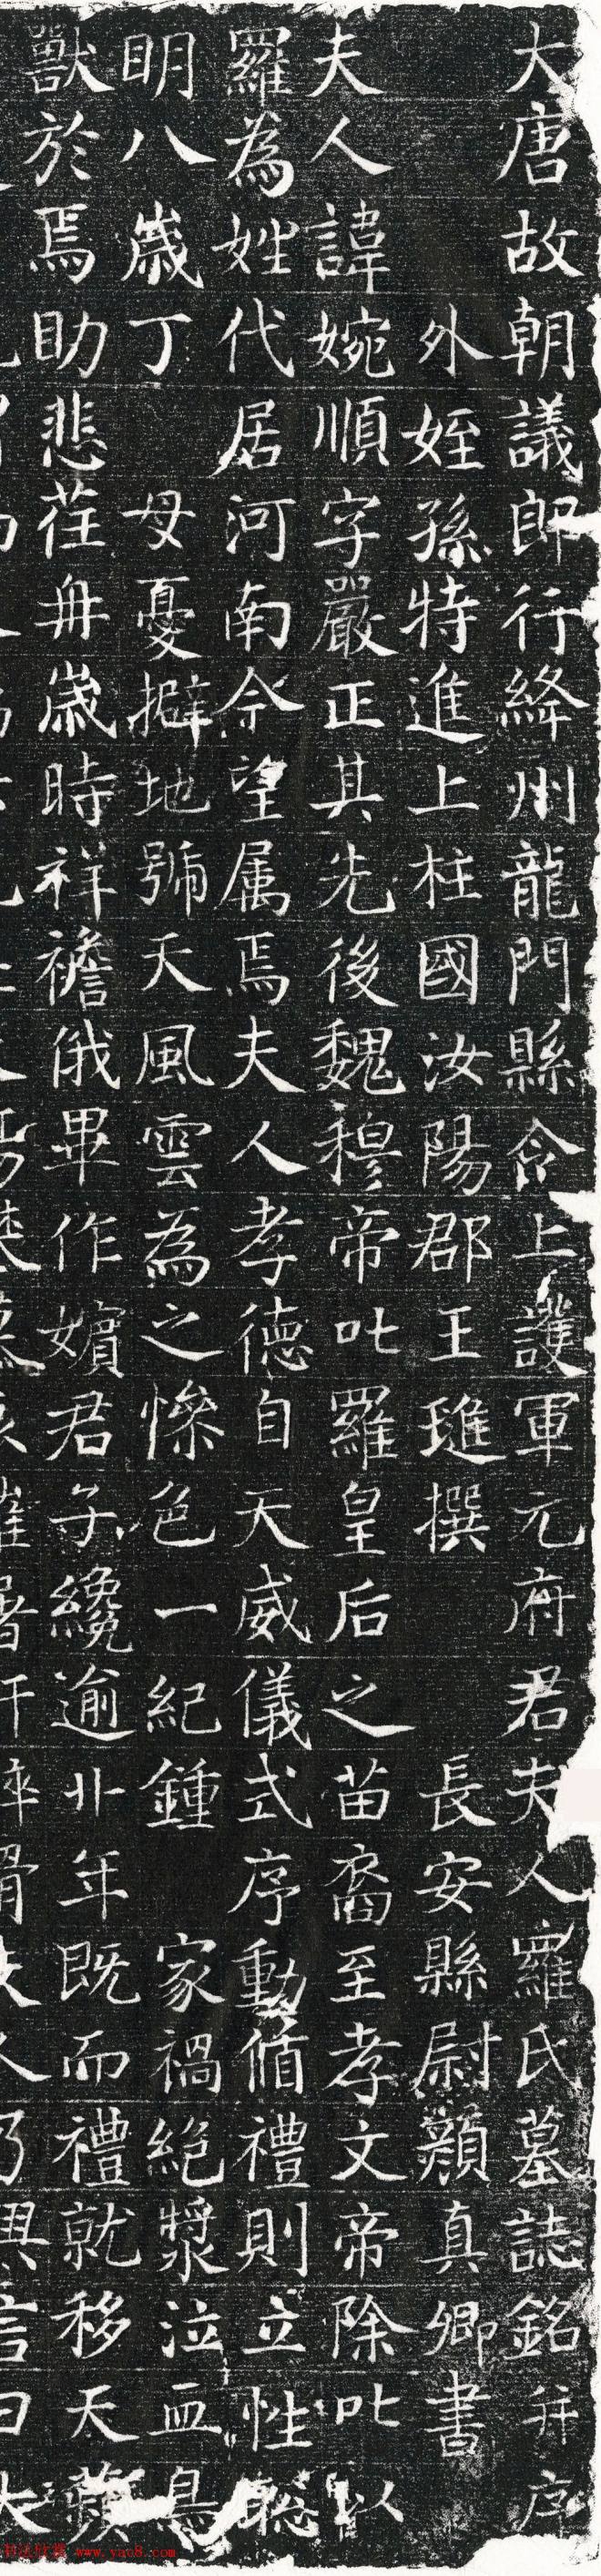 大唐故朝議郎行絳州龍門縣令上護軍元府君夫人羅氏墓誌銘并序
外姪孫特進上柱國汝陽郡王璡撰 長安縣尉顏真卿書
夫人諱婉順字嚴正其先後魏穆帝叱羅皇后之苗裔至孝文帝除叱以
羅為姓代居河南令望属焉夫人孝德自天威儀式序動循禮則立性聰
明八歲丁 母憂擗地號天風雲為之慘色一紀鍾 家禍絕漿泣血鳥
獸於焉助悲荏冉歲時祥禫俄畢作嬪君子纔逾廿年既而禮就移天蘋
www.yac8.com